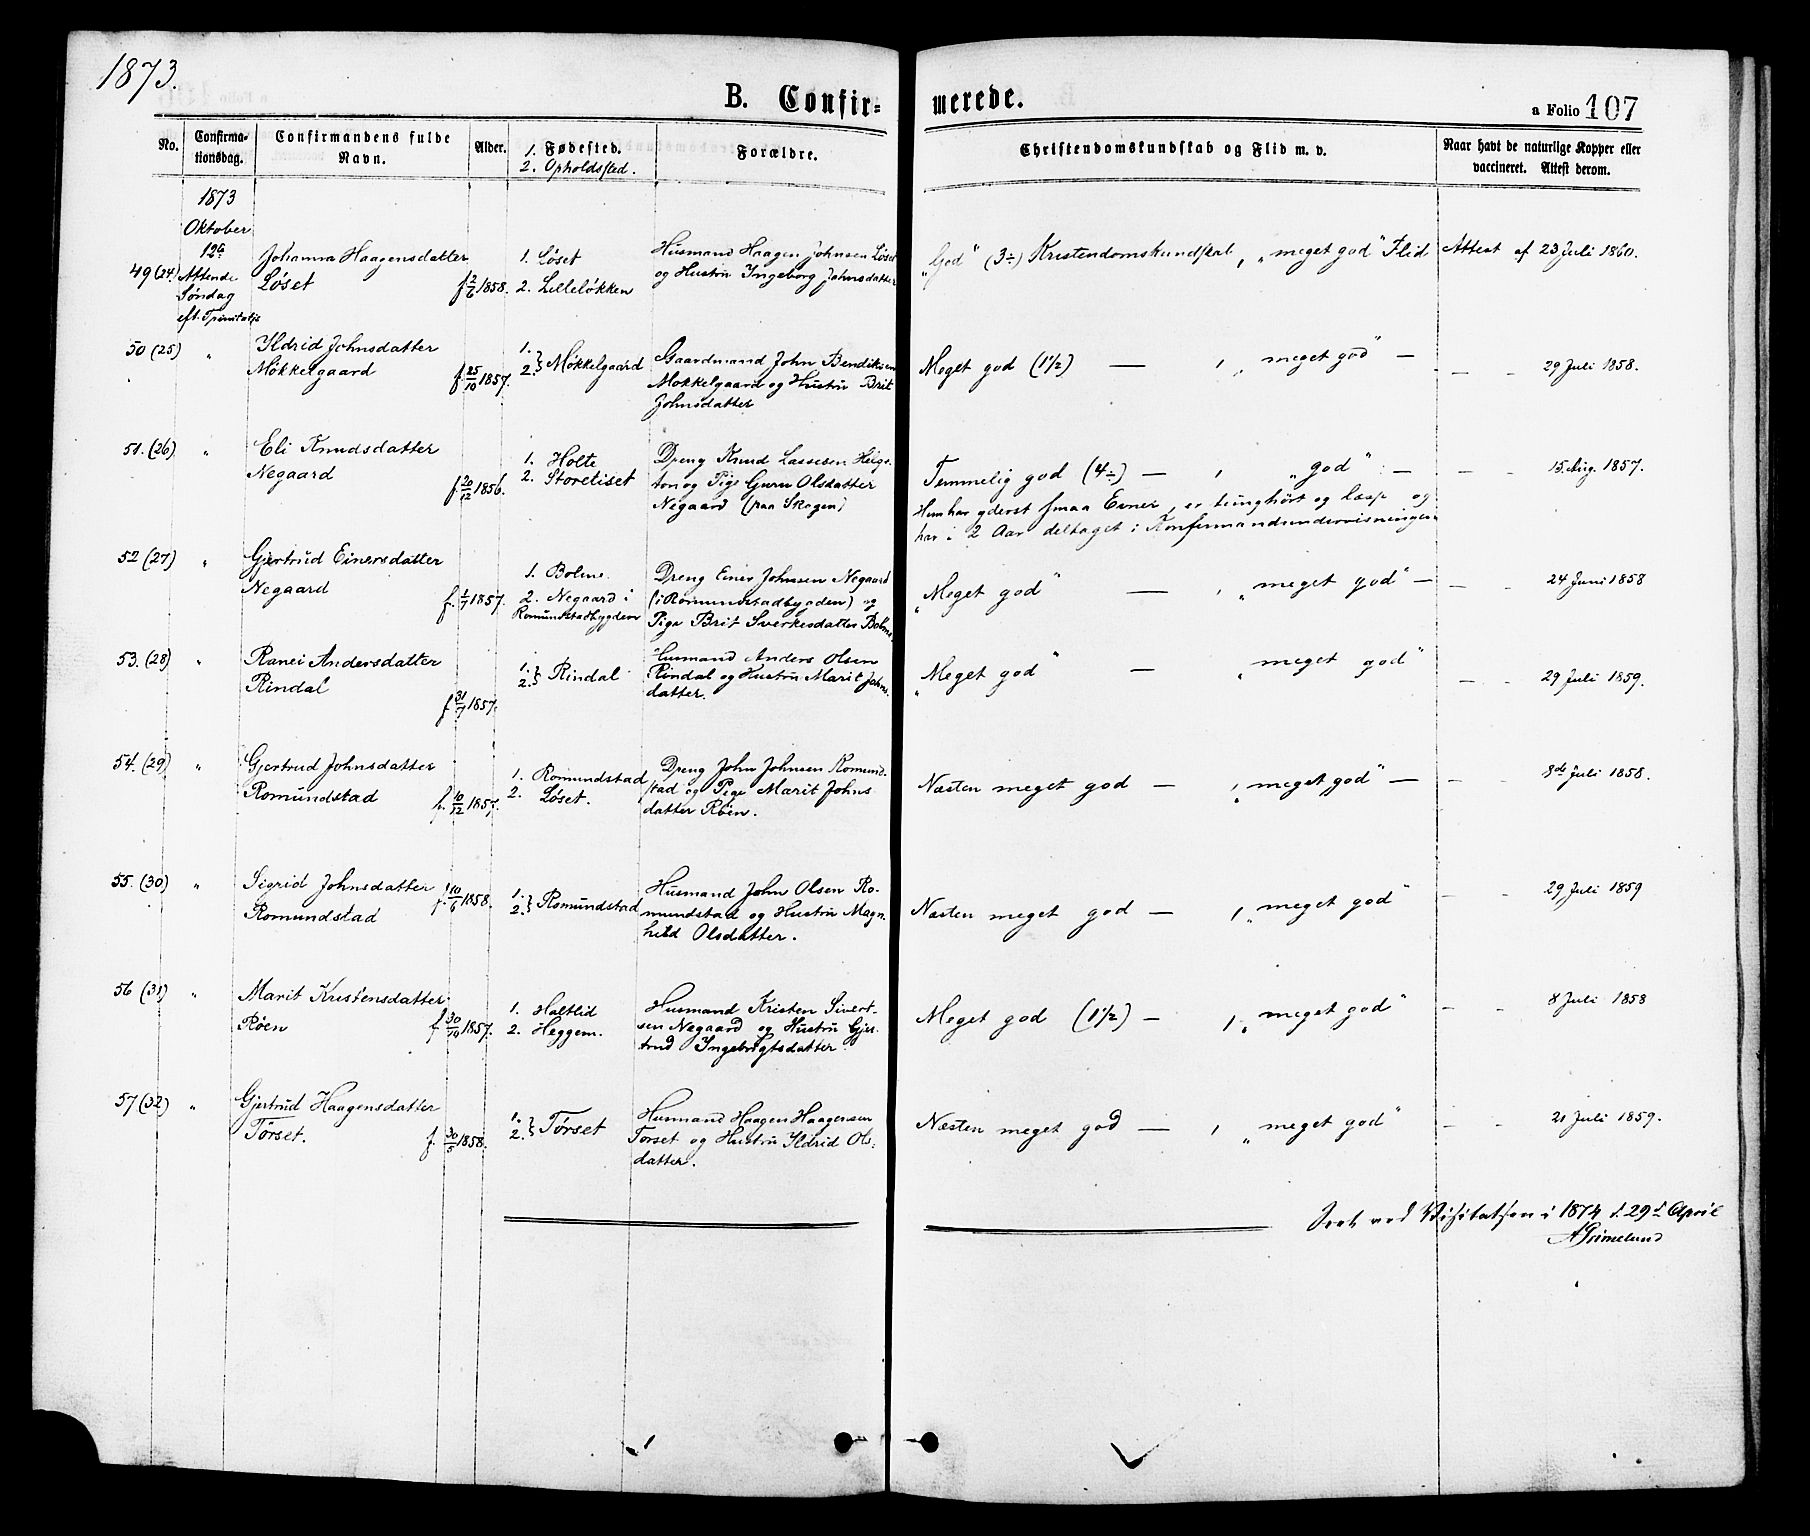 1873.
B. Confir-
merede.
a Folio 107
No.
Confirma-
tionsdag.
Confirmandens fulde
Navn.
Alder.
1. Fødested.
2. Opholdssted.
Forældre.
Christendomskundskab og Flid m. v.
Naar havt de naturlige Kopper eller
vaccineret. Attest derom.
1873
Oktober
12te
Attende
Søndag
eft. Trinitatis
49 (24)
Johanna Haagensdatter
Løset
f. 2/6 1858.
1. Løset
2. Lilleløkken
Husmand Haagen Johnsen Løset
og Hustru Ingeborg Johnsdatter
"God" (3÷) Kristendomskundskab, "meget god" Flid
Attest af 23 Juli 1860.
50 (25)
"
Ildrid Johnsdatter
Mökkelgaard
f. 25/10 1857.
1. } Møkkelgaard
2.
Gaardmand John Bendiksen
Mokkelgaard og Hustru Brit
Johnsdatter
Meget god (1½) — , "meget god" —
— - 29 Juli 1858.
51. (26)
"
Eli Knudsdatter
Negaard
f. 20/12 1856.
1. Holte
2. Storeliset
Dreng Knud Lassesen Heigs-
ton og Pige Guru Olsdatter
Negaard (paa Skogen)
Temmelig god (4÷) — , "god" —
— - 15. Aug. 1857.
Hun har yderst smaa Evner, er tunghørt og læsp og
har i 2 Aar deltaget i Konfirmandundervisningen
52 (27)
"
Gjertrud Einersdatter
Negaard
f. 1/7 1857.
1. Bolme.
2. Negaard i
Romundstadbygden
Dreng Einer Johnsen Negaard
(i Romundstadbygden) og
Pige Brit Sverkesdatter Bolme
"Meget god" — , "meget god" —
— - 24 Juni 1858
53. (28)
"
Ranei Andersdatter
Rindal
f. 31/7 1857.
1. } Rindal
2.
Husmand Anders Olsen
Rindal og Hustru Marit Johns-
datter.
"Meget god" — "meget god"
— - 29 Juli 1859.
54. (29)
"
Gjertrud Johnsdatter
Romundstad
f. 10/12 1857.
1. Romundstad
2. Løset.
Dreng John Johnsen Romund-
stad og Pige Marit Johns-
datter Röen.
Næsten meget god — , "meget god" —
— - 8de Juli 1858.
55. (30)
"
Sigrid Johnsdatter
Romundstad
f. 10/6 1858.
1. } Romundstad
2.
Husmand John Olsen Ro-
mundstad og Hustru Magn-
hild Olsdatter.
Næsten meget god — , "meget god"
— - 29 Juli 1859
56 (31)
"
Marit Kristensdatter
Röen
f. 30/10 1857.
1. Haltlid
2. Heggem.
Husmand Kristen Sivert-
sen Negaard og Hustru Gjer-
trud Ingebrigtsdatter
Meget god (1½) — , "meget god"
— - 8 Juli 1858
57 (32)
"
Gjertrud Haagensdatter
Tørset.
f. 30/5 1858.
1. } Tørset
2.
Husmand Haagen Haagensen
Torset og Hustru Ildrid Ols-
datter.
Næsten meget god — , "meget god"
— - 21 Juli 1859.
Seet ved Visitatsen i 1874 d. 29d April
A Grimelund